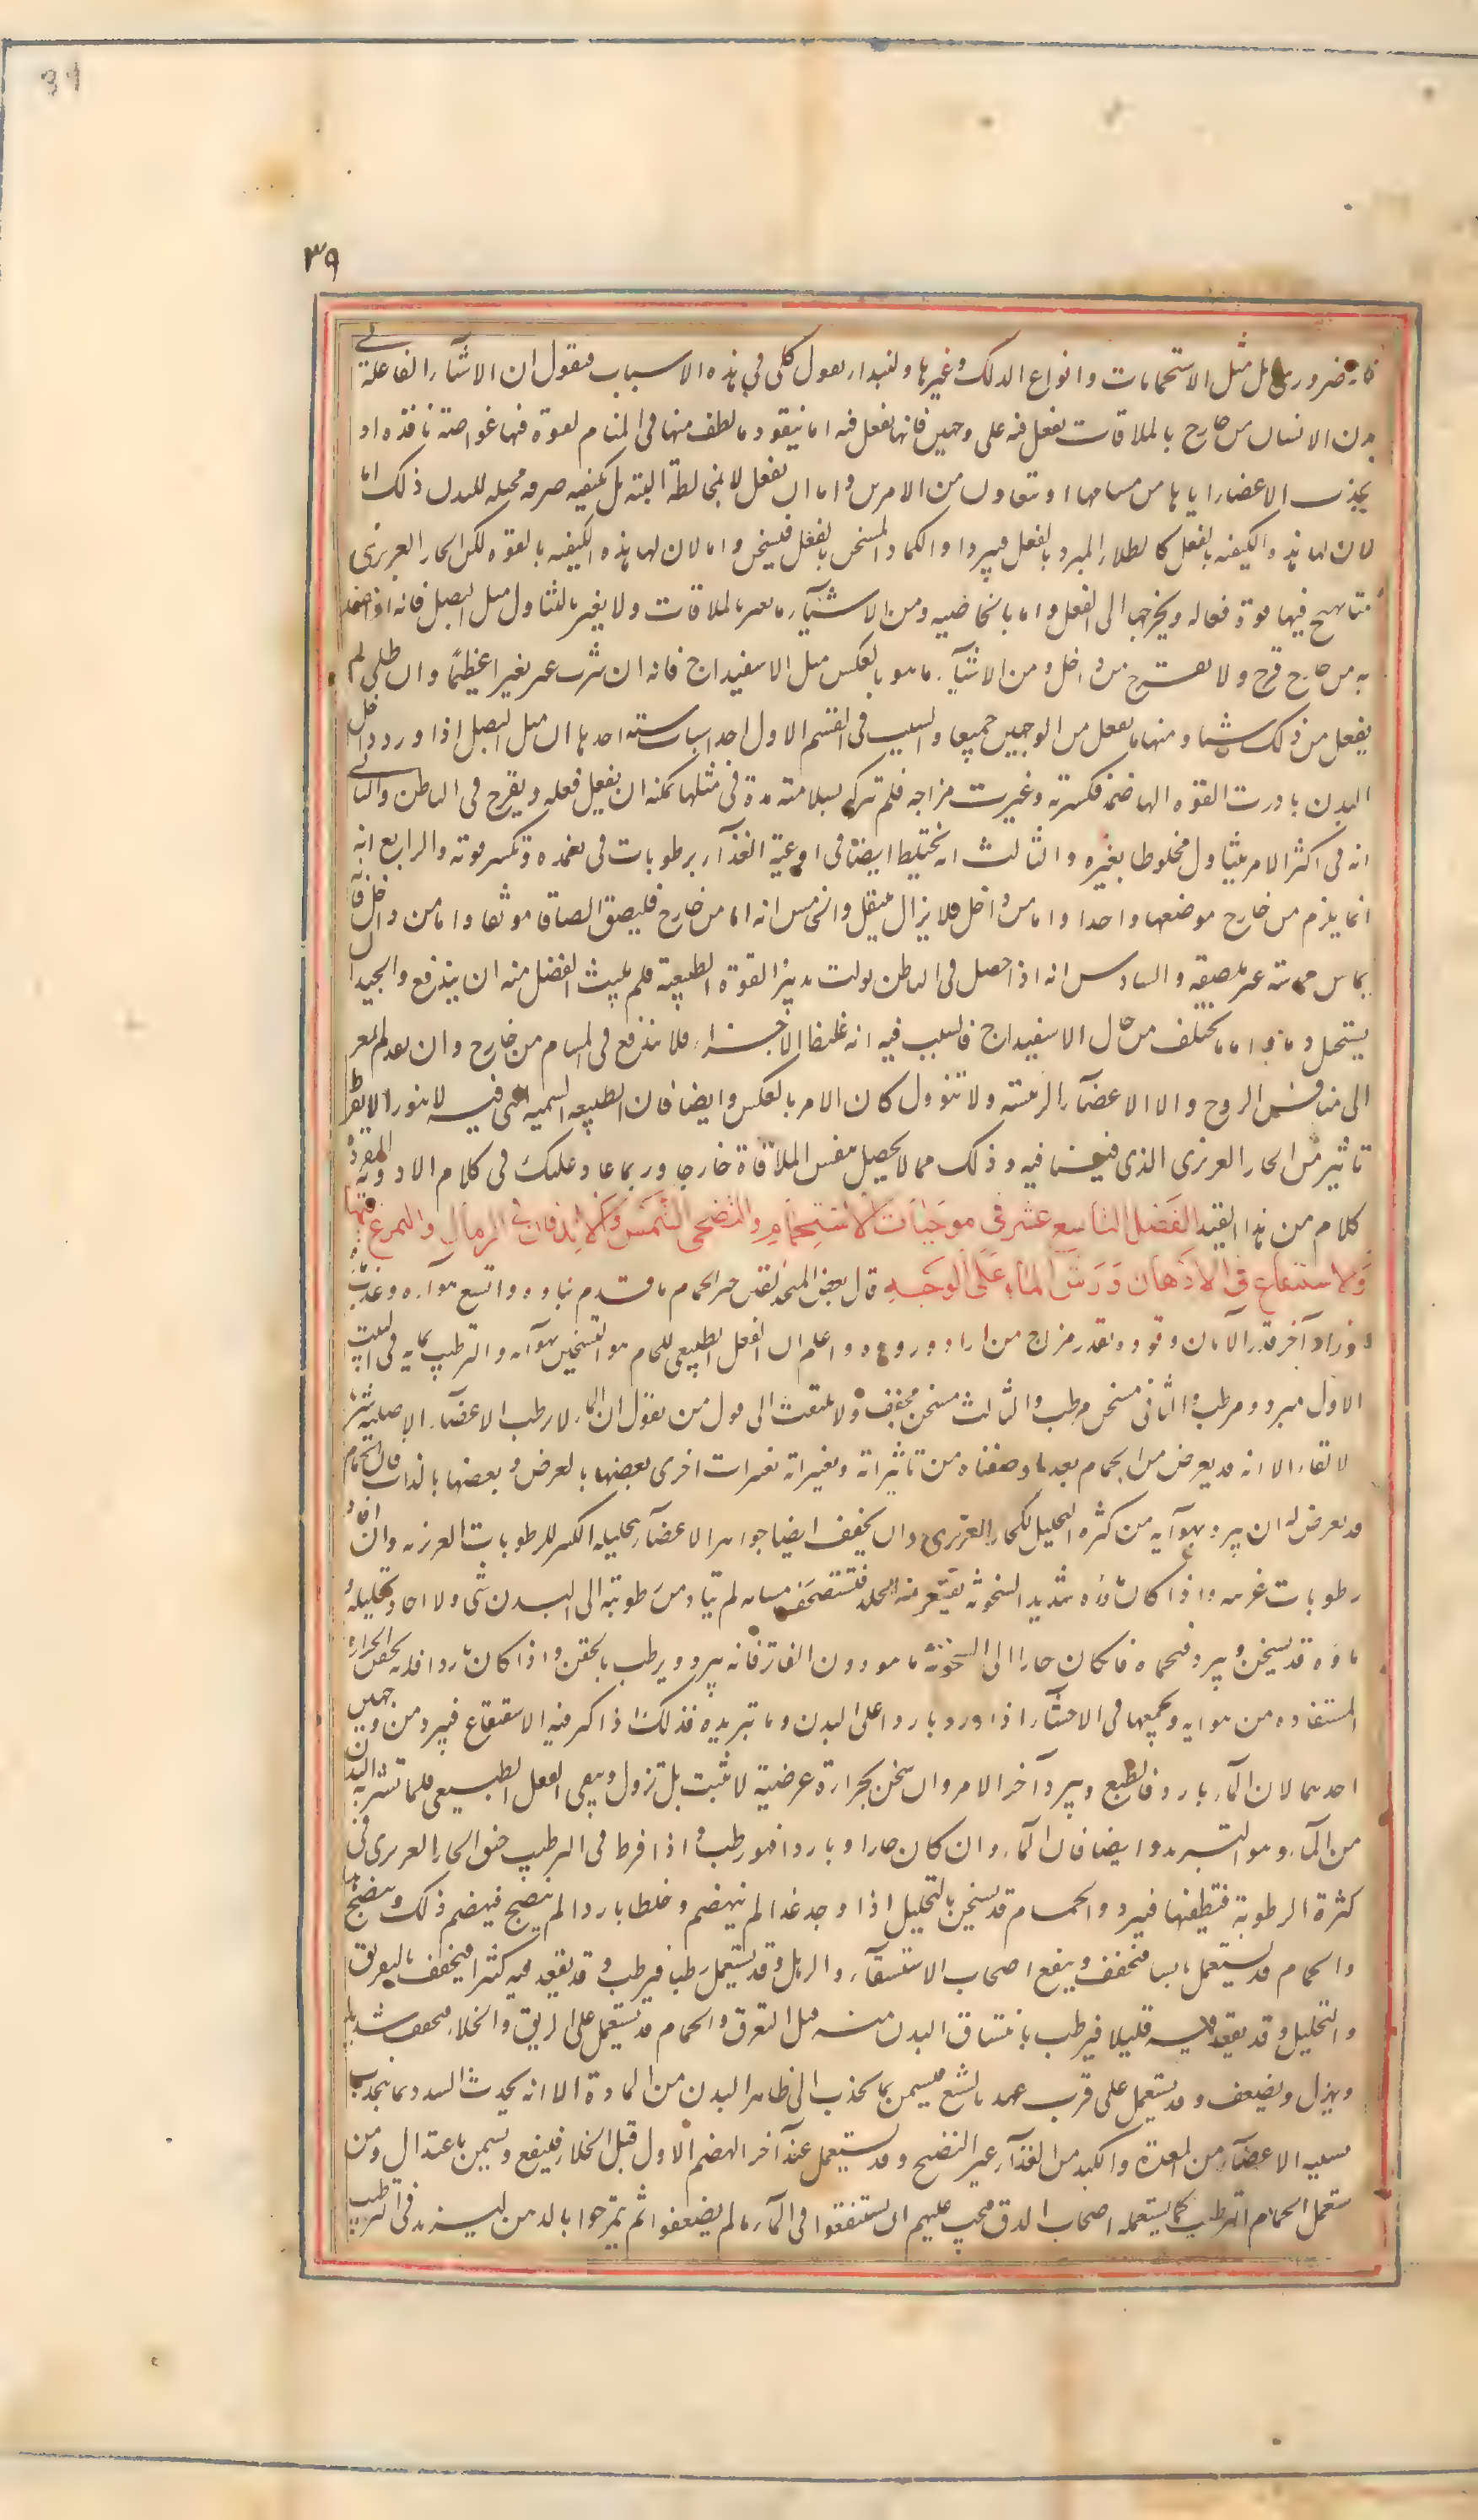 39
٣٩
ضرورى بل مثل الاستحمامات وانواع الدلك وغيرها ولنبدأ بقول كلى فى هذه الاسباب فنقول ان الاشياء الفاعلة فى
بدن الانسان من خارج بالملاقات تفعل فيه على وجهين فانها تفعل فيه اما بنفوذ ما لطف منها فى المسام لقوة فيها غواصة نافذه او
بجذب الاعضاء اياها من مسامها او بتعاون من الامرين واما ان تفعل لا بمخالطة البتة بل بكيفيه صرفه محيله للبدن ذلك اما
لان لها هذه الكيفيه بالفعل كالطلاء المبرد بالفعل فيبرد او الكماد المسخن بالفعل فيسخن واما لان لها هذه الكيفيه بالقوه لكن الحار الغريزى
منا يهيج فيها قوة فعاله ويخرجها الى الفعل واما بالخاصيه ومن الاشياء ما يغير بالملاقات ولا يغير بالتناول مثل البصل فانه اذا ضمد
به من خارج قرح ولا يقرح من داخل ومن الاشياء ما هو بالعكس مثل الاسفيداج فانه ان شرب غير تغيرا عظيما وان طلى لم
يفعل من ذلك شيئا ومنها ما يفعل من الوجهين جميعا والسبب فى القسم الاول احد اسباب ستة احدها ان مثل البصل اذا ورد داخل
البدن بادرت القوه الهاضمة فكسرته وغيرت مزاجه فلم تتركه بسلامته مدة فى مثلها يمكنه ان يفعل فعله ويقرح فى الباطن والثانى
انه فى اكثر الامر يتناول مخلوطا بغيره والثالث انه يختلط ايضا فى اوعية الغذاء برطوبات فى تغمده وتكسر قوته والرابع انه
انما يلزم من خارج موضعها واحدا واما من داخل فلا يزال ينتقل والخامس انه اما من خارج فليصق الصاقا موثقا واما من داخل فانه
يماس مماسة غير ملصيقه والسادس انه اذا حصل فى الباطن تولت تدبيره القوة الطبيعية فلم يلبث الفضل منه ان يندفع والجيد ان
يستحيل دما واما ما يختلف من حال الاسفيداج فالسبب فيه انه غليظ الاجزاء فلا ينفذ فى المسام من خارج وان نفذ لم يمعن
الى منافس الروح والى الاعضاء الرئيسه ولا تنوول كان الامر بالعكس وايضا فان الطبيعه السميه التى فيه لا تثور الا بفرط
تاثير من الحار الغريزى الذى فينا فيه وذلك مما لا يحصل بنفس الملاقاة خارجا وربما عاد عليك فى كلام الادويه المفردة
كلام من هذا القبيل الفصل التاسع عشر فى موجبات الاستحمام والتضحى الشمس والاندفان فى الرمال والتمرغ فيها
والاستنقاع فى الادهان ورش الماء على الوجه قال بعض المتحذلقين خير الحمام ما قدم بناوه واتسع هواءه وعذب ماؤه
وزاد آخر قدر الآتان وقوده بقدر مزاج من اراد وروده واعلم ان الفعل الطبيعى للحمام هو التسخين بهوآئه والترطيب بمائه فالبيت
الاول مبرد ومرطب والثانى مسخن مرطب والثالث مسخن مجفف ولا يلتفت الى قول من يقول ان الماء لا يرطب الاعضاء الاصلية شربا
لا لقاء الا انه قد يعرض من الحمام بعد ما وصفناه من تاثيراته وتغييراته تغيرات اخرى بعضها بالعرض وبعضها بالذات فان الحمام
قد يعرض له ان يبرد بهوآيه من كثرة التحليل للحار الغريزى وان يجفف ايضا جواهر الاعضاء بتحليله الكثير للرطوبات الغريزيه وان افاد
رطوبات غريبه واذا كان ماؤه شديد السخونة يقشعر منه الجلد فتستحصف مسامه لم يتاد من رطوبته الى البدن شى ولا اجاد تحليله و
ماؤه قد يسخن ويبرد فحماه فان كان حارا الى السخونة ما هو دون الفاتر فانه يبرد ويرطب بالحقن واذا كان باردا فانه يحقن الحرارة
المستفاده من هوايه ويجمعها فى الاحشاء اذا ورد باردا على البدن وما تبريده فذلك اذا كثر فيه الاستنقاع فيبرد من وجهين
احدهما لان الماء بارد فالطبع ويبرد آخر الامر وان سخن بحرارة عرضية لا تثبت بل تزول ويبقى الفعل الطبيعى فلما تشربه البدن
من الماء وهو التبريد وايضا فان الماء وان كان حارا او باردا فهو رطب واذا افرط فى الترطيب خنق الحار الغريزى فى
كثرة الرطوبة فتطفئها فيبرد والحمام قد يسخن بالتحليل اذا وجد غذا لم ينهضم وخلطا باردا لم ينضج فيهضم ذلك وينضج هذا
والحمام قد يستعمل يابسا فيجفف وينفع اصحاب الاستسقاء والرهل وقد يستعمل رطبا فيرطب وقد يقعد فيه كثيرا فيجفف بالتعريق
والتحليل وقد يقعد فيه قليلا فيرطب بانتشاق البدن منه قبل التعرق والحمام قد يستعمل على الريق والخلاء فيجفف شديدا
ويهزل ويضعف وقد يستعمل على قرب عهد بالشبع فيسمن بما يجذب الى ظاهر البدن من المادة الا انه يحدث السدد بما ينجذب
بسببه الى الاعضاء من المعدة والكبد من الغذاء غير النضيج وقد يستعمل عند آخر الهضم الاول قبل الخلاء فلينفع ويسمن باعتدال ومن
استعمل الحمام للترطيب كما يستعمله اصحاب الدق فيجب عليهم ان يستنقعوا فى الماء ما لم يضعفوا ثم يتمرخوا بالدهن ليزيد فى الترطيب